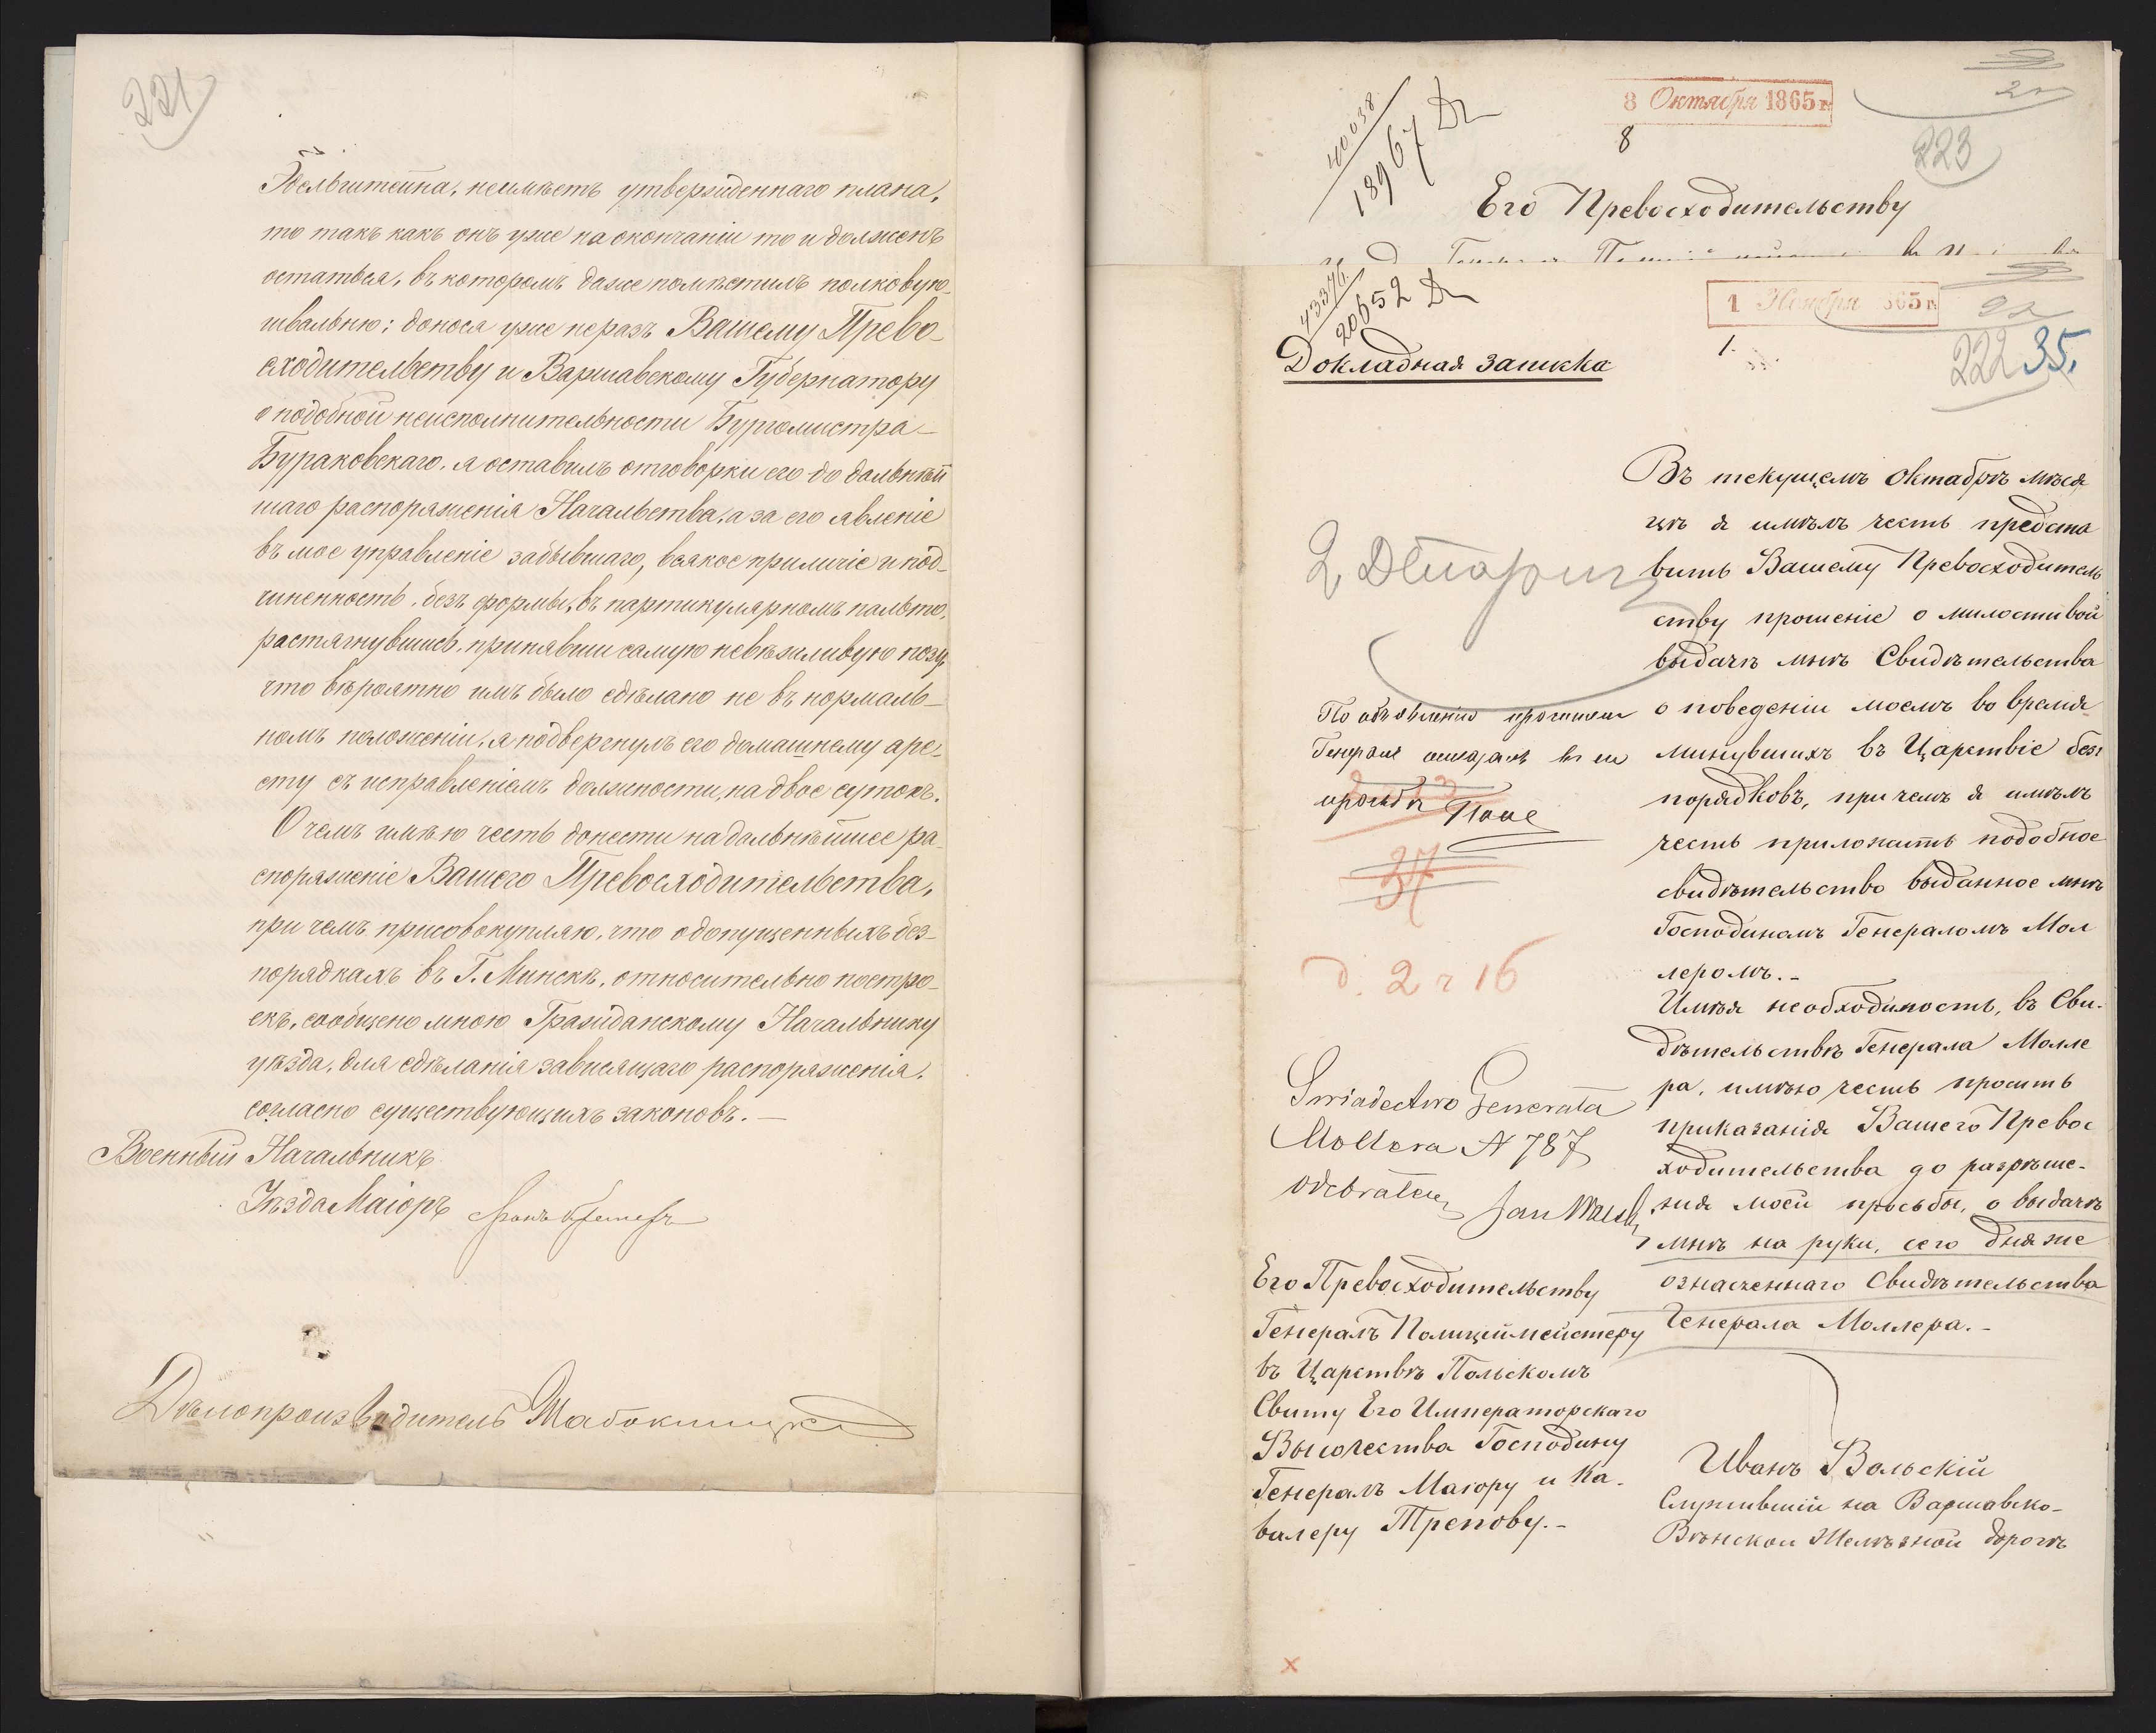 221
Эдельштейна, неимѣетъ утвержденнаго плана,
то такъ какъ онъ уже на окончаніи то и долженъ
остаться, въ которомъ даже помѣстилъ полковую
швальню; донося уже неразъ Вашему Прево-
сходительству и Варшавскому Губернатору
о подобной неисполнительности Бургомистра
Бураковскаго, я оставилъ отговорки его до дальнѣй
шаго распоряженія Начальства, а за его явленіе
въ мое управленіе забывшаго, всякое приличіе и под-
чиненность, безъ формы, въ партикулярномъ пальто,
растянувшись, принявши самую невѣжливую позу,
что вѣроятно имъ было сдѣлано не въ нормаль-
номъ положеніи, я подвергнулъ его домашнему аре-
сту съ исправленіемъ должности, на двое сутокъ.
О чемъ имѣю честь донести на дальнѣйшее ра-
споряженіе Вашего Превосходительства,
при чемъ присовокупляю, что о допущенныхъ без-
порядкахъ въ Г. Минскѣ, относительно постро-
екъ, сообщено мною Гражданскому Начальнику
уѣзда, для сдѣланія зависящаго распоряженія,
согласно существующихъ законовъ.—
Военный Начальникъ
Уѣзда Маіоръ
Дѣлопроизводитель
40038
18967
8 Октября 1865 г.
8
223
Его Превосходительству
43376
20652
1 Ноября 1865 г.
1.
222 35.
Докладная записка
Въ текущемъ Октябрѣ мѣся
цѣ я имѣлъ честь предста
вить Вашему Превосходитель
ству прошеніе о милостивой
выдачѣ мнѣ Свидѣтельства
о поведеніи моемъ во время
минувшихъ въ Царствіе без
порядковъ, при чемъ я имѣлъ
честь приложить подобное
свидѣтельство выданное мнѣ
Господиномъ Генераломъ Мол
леромъ.-
Имѣя необходимость, въ Сви-
дѣтельствѣ Генерала Молле
ра, имѣю честь просить
приказанія Вашего Превос
ходительства до разрѣше-
нія моей прсьбы, о выдачѣ
мнѣ на руки, сего дня же
означеннаго Свидѣтельства
Генерала Моллера.-
Иванъ Вольскій
Служившій на Варшавско-
Вѣнской Желѣзной дорогѣ
По объявленію
37
д. 2 ч 16
Swiadectwo Generała
Mollera N 787
odebrałem
Jan
Его Превосходительству
Генералъ Полиціймейстеру
въ Царствѣ Польскомъ
Свиты Его Императорскаго
Высочества Господину
Генералъ Маіору и Ка-
валеру Трепову.-
x